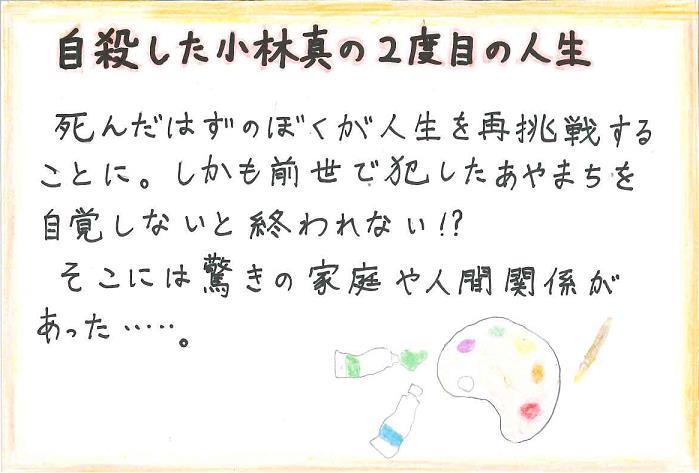 自殺した小林真の2度目の人生
死んだはずのぼくが人生を再挑戦する
ことに。しかも前世で犯したあやまちを
自覚しないと終われない!?
そこには驚きの家庭や人間関係が
あった……。